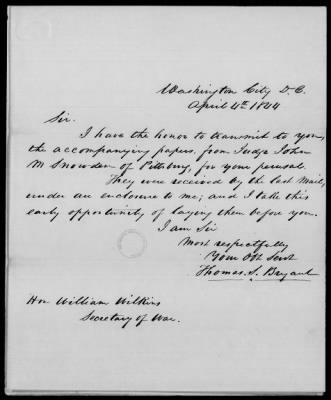 Washington City D.C.
April 4th 1844
Sir.
I have the honor to transmit to you,
the accompanying papers, from Judge John
M Snowden of Pittsburg, for your perusal.
They were received by the last Mail,
under an enclosure to me; and I take this
early opportunity of laying them before you.
I am Sir
Most respectfully
Your Obt Servt
Thomas. S. Bryant
Hon William Wilkins
Secretary of War.